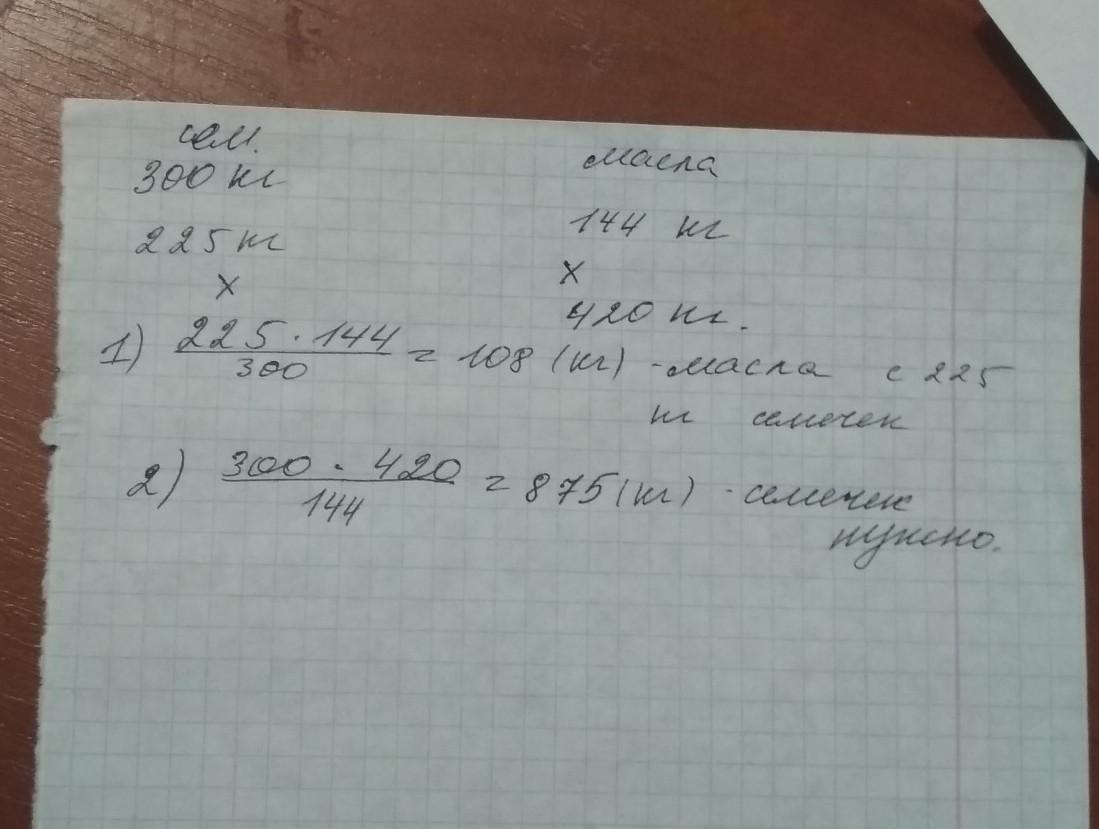 сем.
масла
300 кг
144 кг
225 кг
х
х
420 кг.
1) 225 · 144 / 300 = 108 (кг) - масла с 225
кг семечек
2) 300 · 420 / 144 = 875 (кг) - семечек
нужно.